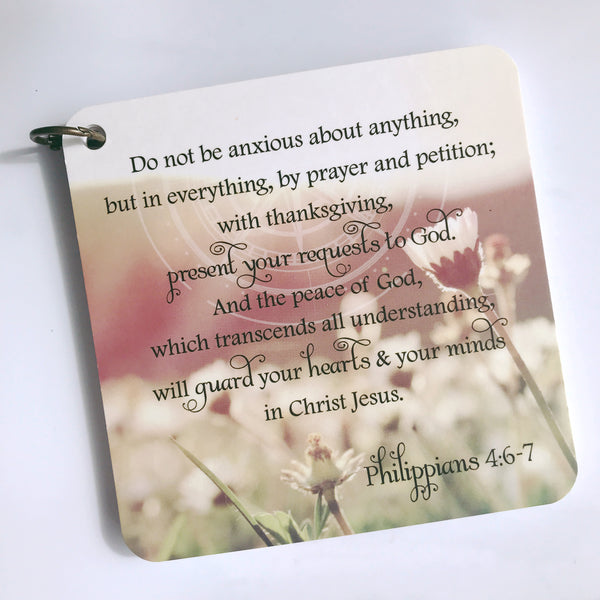 Do not be anxious about anything,
but in everything, by prayer and petition;
with thanksgiving,
present your requests to God.
And the peace of God,
which transcends all understanding,
will guard your hearts & your minds
in Christ Jesus.
Philippians 4:6-7